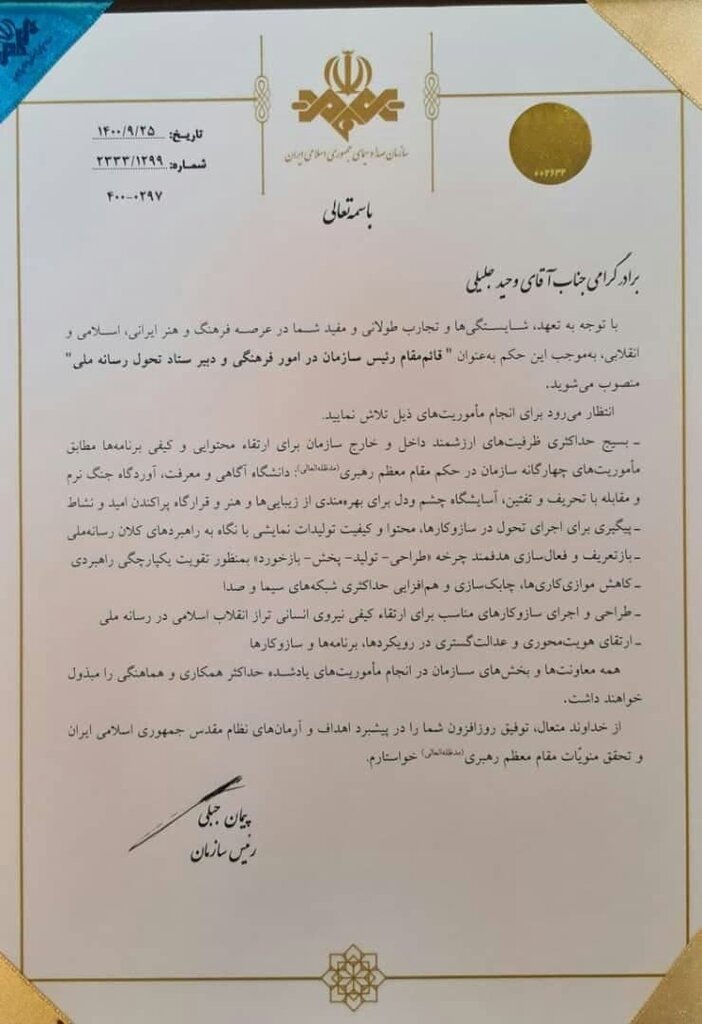 سازمان صدا و سیمای جمهوری اسلامی ایران
تاریخ: ۱۴۰۰/۹/۲۵
شماره: ۲۳۳۳/۱۲۹۹
۴۰۰-۰۲۹۷
باسمه تعالی
برادر گرامی جناب آقای وحید جلیلی
با توجه به تعهد، شایستگی‌ها و تجارب طولانی و مفید شما در عرصه فرهنگ و هنر ایرانی، اسلامی و
انقلابی، به‌موجب این حکم به‌عنوان " قائم‌مقام رئیس سازمان در امور فرهنگی و دبیر ستاد تحول رسانه ملی"
منصوب می‌شوید.
انتظار می‌رود برای انجام مأموریت‌های ذیل تلاش نمایید.
ـ بسیج حداکثری ظرفیت‌های ارزشمند داخل و خارج سازمان برای ارتقاء محتوایی و کیفی برنامه‌ها مطابق
مأموریت‌های چهارگانه سازمان در حکم مقام معظم رهبری(مدظله‌العالی): دانشگاه آگاهی و معرفت، آوردگاه جنگ نرم
و مقابله با تحریف و تفتین، آسایشگاه چشم ودل برای بهره‌مندی از زیبایی‌ها و هنر و قرارگاه پراکندن امید و نشاط
ـ پیگیری برای اجرای تحول در سازوکارها، محتوا و کیفیت تولیدات نمایشی با نگاه به راهبردهای کلان رسانه‌ملی
ـ بازتعریف و فعال‌سازی هدفمند چرخه «طراحی- تولید- پخش- بازخورد» بمنظور تقویت یکپارچگی راهبردی
ـ کاهش موازی‌کاری‌ها، چابک‌سازی و هم‌افزایی حداکثری شبکه‌های سیما و صدا
ـ طراحی و اجرای سازوکارهای مناسب برای ارتقاء کیفی نیروی انسانی تراز انقلاب اسلامی در رسانه ملی
ـ ارتقای هویت‌محوری و عدالت‌گستری در رویکردها، برنامه‌ها و سازوکارها
همه معاونت‌ها و بخش‌های سازمان در انجام مأموریت‌های یادشده حداکثر همکاری و هماهنگی را مبذول
خواهند داشت.
از خداوند متعال، توفیق روزافزون شما را در پیشبرد اهداف و آرمان‌های نظام مقدس جمهوری اسلامی ایران
و تحقق منویّات مقام معظم رهبری(مدظله‌العالی) خواستارم.
پیمان جبلی
رئیس سازمان